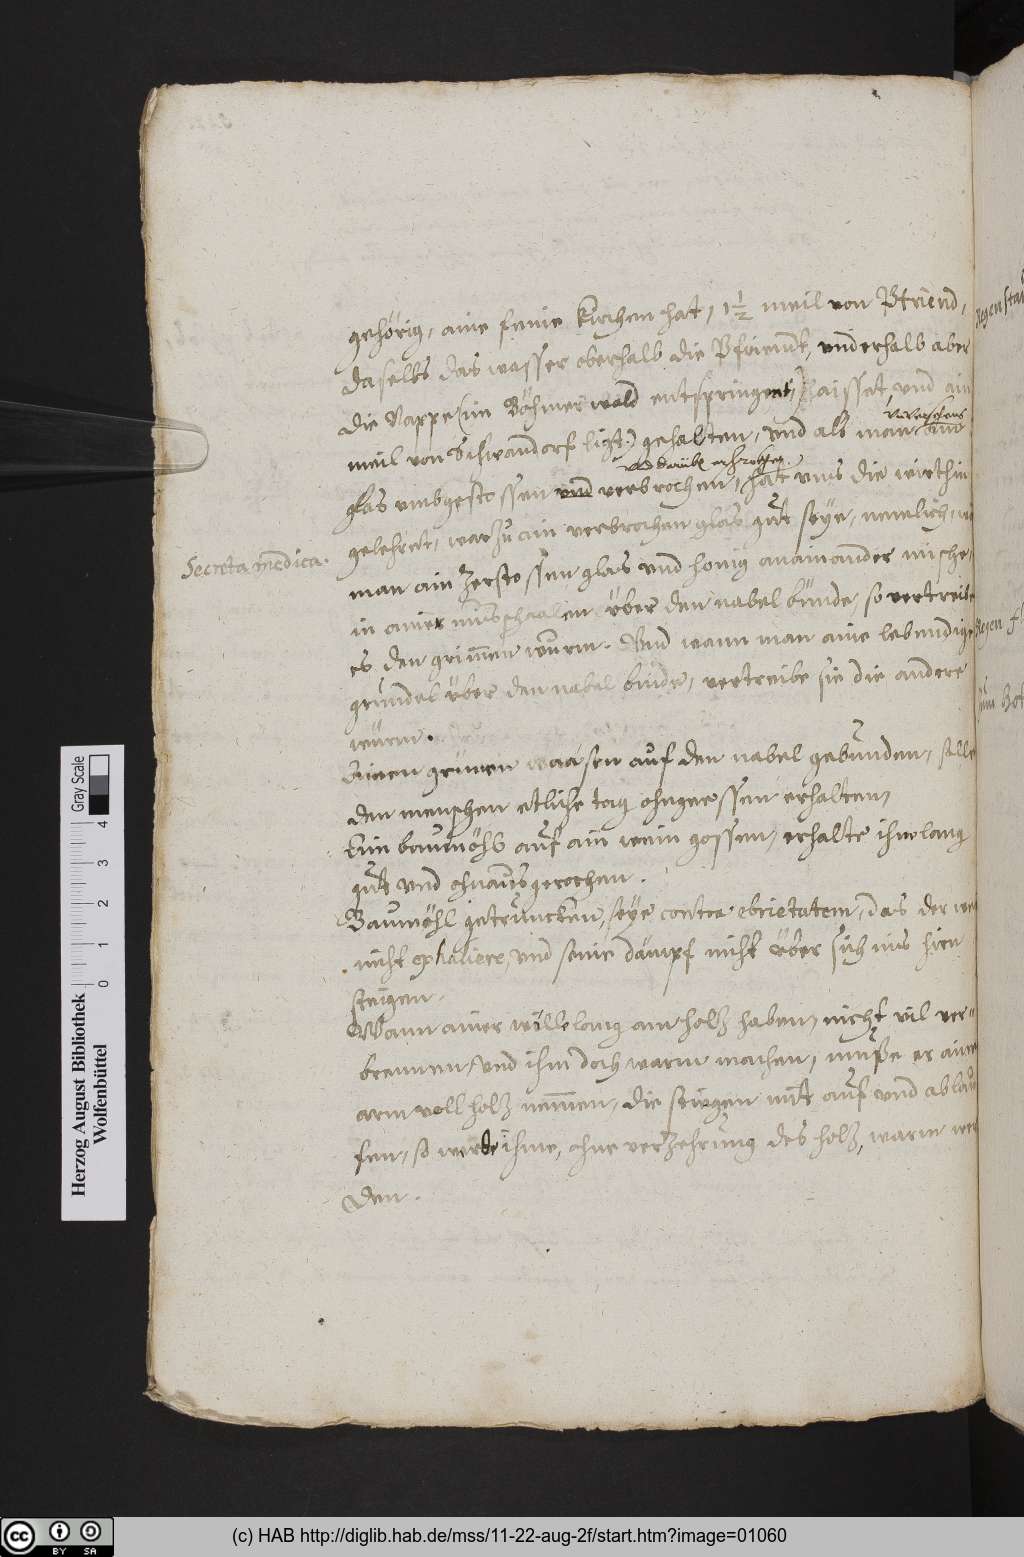 gehörig, aine feine kirchen hat, 1 1/2 meil von Pfriend,
daselbs das wasser oberhalb die Pfriembt, underhalb aber
die Nappe (im Böhmerwald entspringent,) haisset, und ain
meil von Schwandorf ligt.) gehalten, und als man ain
unversehens
glas umbgestossen und verbrochen, hat uns die wirthin
gelehret, warzu ain verbrochen glas gut seye, nemlich,
Secreta medica.
man ain zerstossen glas und honig anainander mische,
in ainer nussschaalen über den nabel bünde, so vertreibe
es den grimmen wurm. Und wann man aine lebendige
grundel über den nabel binde, vertreibe sie die andere
würm.
Einen grünen waasen auf den nabel gebunden, solle
den menschen etliche tag ohngeessen erhalten,
Ein baumöhl auf ain wein gossen, erhalte ihn lang
gut und ohnausgerochen.
Baumöhl getruncken, seye contra ebrietatem, das der
nicht exhaliere, und seine dämpf nicht über sich ins hirn
steigen.
Wann ainer wölle lang am holtz haben, nicht vil ver-
brennen, und ihm doch warm machen, müsse er ainen
arm voll holtz nemmen, die stiegen mit auf und ab lau
fen, so werde ihme, ohne verzehrung des holtz, warm wer
den.
Regen
Herzog August Bibliothek
Wolfenbüttel
Gray Scale
0 1 2 3 4
cc BY SA
(c) HAB http://diglib.hab.de/mss/11-22-aug-2f/start.htm?image=01060